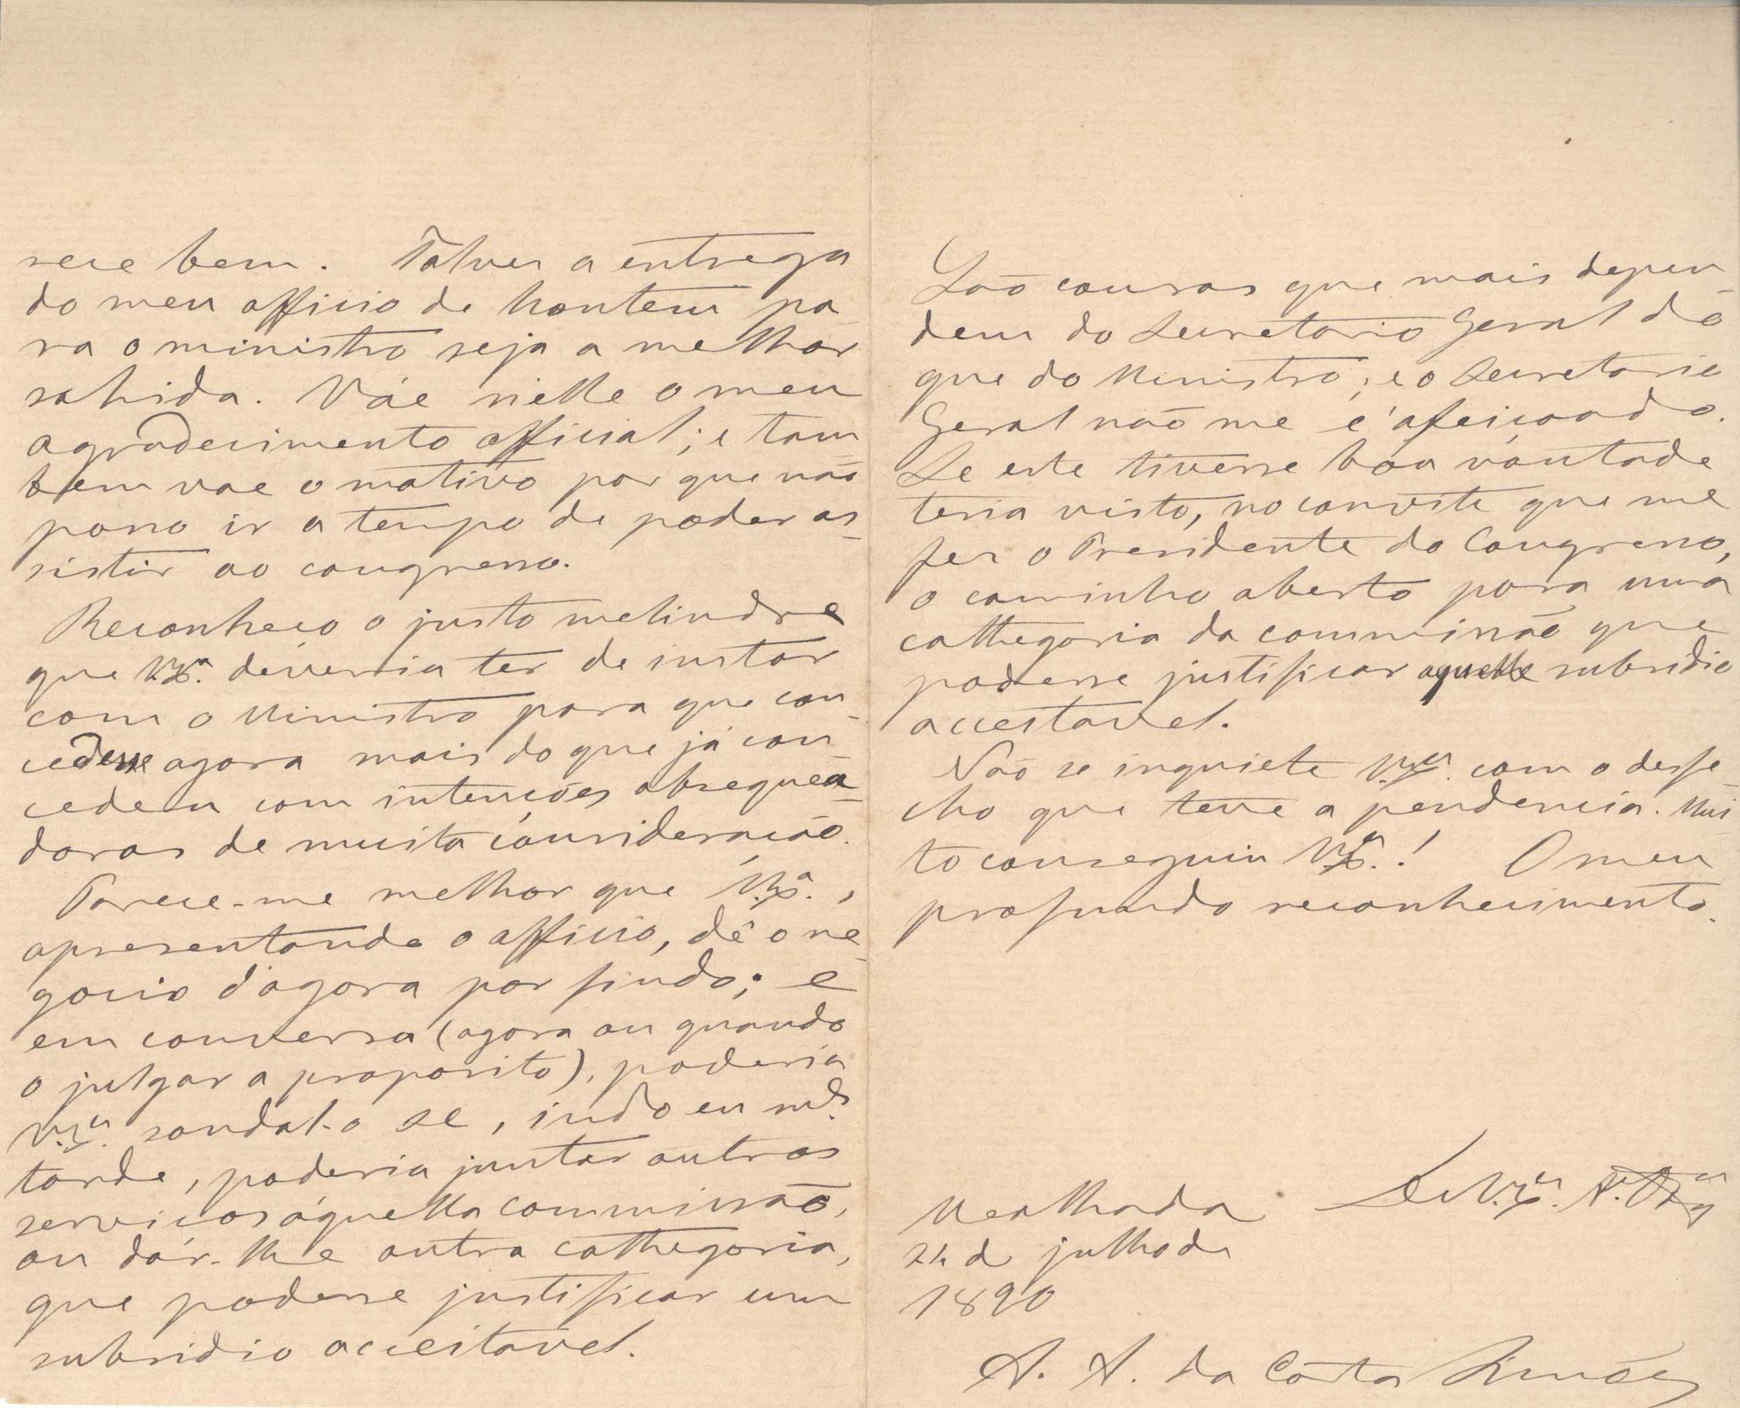 rece bem. Talvez a entrega
do meu officio de hontem pa
ra o ministro seja a melhor
sahida. Váe nelle o meu
agradecimento official; e tam
bem vae o motivo por que não
posso ir a tempo de poder as_
sistir ao congresso.
Reconheço o justo melindre
que V.Exª. deveria ter de instar
com o Ministro para que con_
cedesse agora mais do que já con
cedeu com intenções obsequea_
doras de muita consideração.
Parece-me melhor que V.Exª.,
apresentando o officio, dê o ne_
gocio d'agora por findo; e
em conversa (agora ou quando
o julgar a proposito), poderia
V.Exª. sondal-o se, indo eu m.s
tarde, poderia juntar outros
serviços áquella commissão,
ou dár-lhe outra cathegoria,
que podesse justificar um
subsidio acceitavel.
São cousas que mais depen_
dem do Secretario Geral do
que do Ministro; e o Secretario
Geral não me é afeiçoado.
Se este tivesse boa vontade
teria visto, no convite que me
fez o Presidente do Congresso,
o caminho aberto para uma
cathegoria da commissão que
podesse justificar aquelle subsidio
acceitavel.
Não se inquiete V.Exª. com o desfe_
cho que teve a pendencia. Mui
to conseguiu V.Exª.! O meu
profundo reconhecimento.
De V.Exª.
Mealhada
24 de julho de
1890
A. A. da Costa Simões